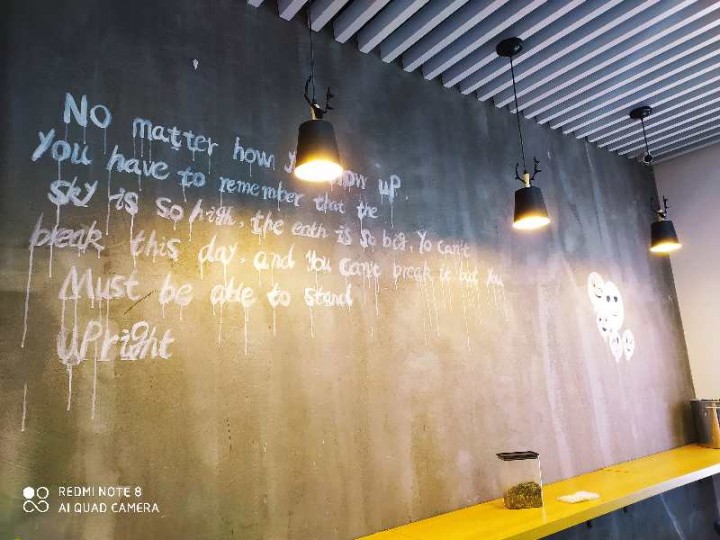 No matter how ow uP
you have to remember that the
sky is so high, the eath is so big, Yo can't
break this day. and you can't break it but you
Must be able to stand
uPright
REDMI NOTE 8
AI QUAD CAMERA